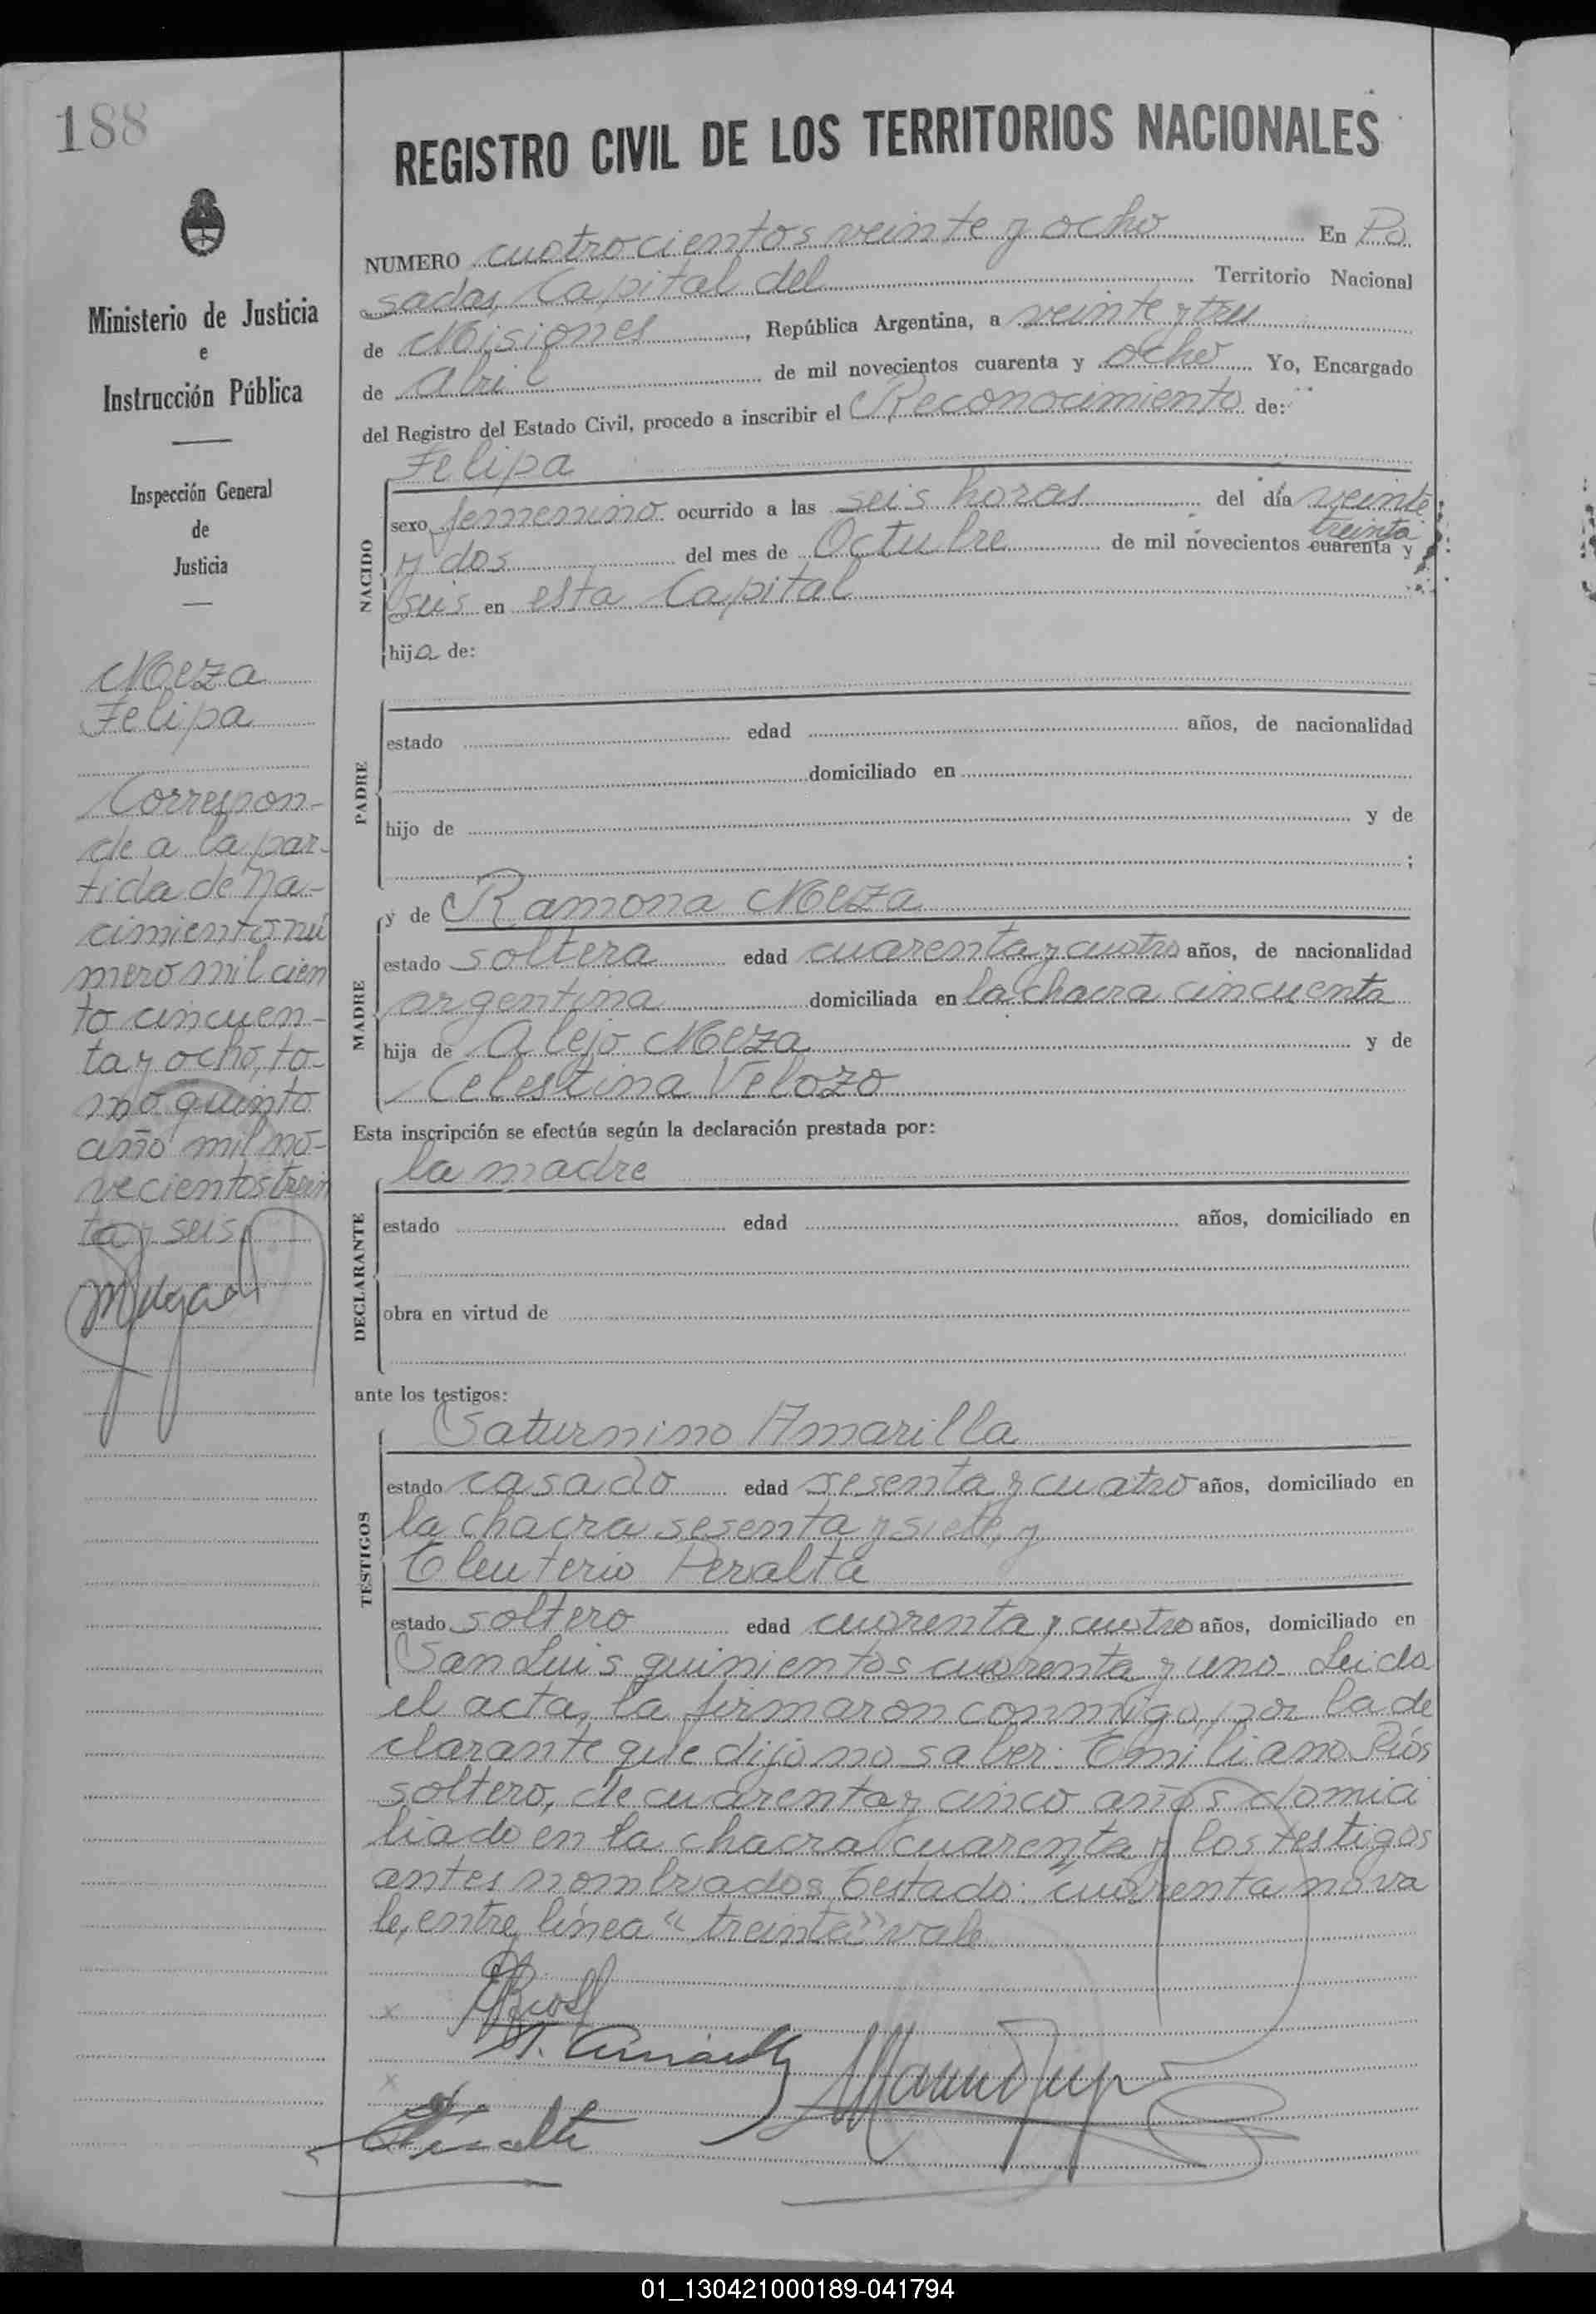 188
Ministerio de Justicia
e
Instrucción Pública
Inspección General
de
Justicia
Meza
Felipa
Correspon-
de a la par-
tida de Na-
cimiento nú
mero mil cien
to cincuen-
ta y ocho, to-
mo quinto
año mil no-
vecientos trein
ta y seis
REGISTRO CIVIL DE LOS TERRITORIOS NACIONALES
NUMERO cuatrocientos veinte y ocho En Po
sadas, Capital del Territorio Nacional
de Misiones, República Argentina, a veinte y tres
de Abril de mil novecientos cuarenta y ocho Yo, Encargado
del Registro del Estado Civil, procedo a inscribir el Reconocimiento de:
Felipa
NACIDO
sexo femenino ocurrido a las seis horas del día veinte
treinta
y dos del mes de Octubre de mil novecientos cuarenta y
seis en esta Capital
hija de:
PADRE
estado edad años, de nacionalidad
domiciliado en
hijo de y de
;
y de Ramona Meza
MADRE
estado soltera edad cuarenta y cuatro años, de nacionalidad
argentina domiciliada en la chacra cincuenta
hija de Alejo Meza y de
Celestina Velozo
Esta inscripción se efectúa según la declaración prestada por:
la madre
DECLARANTE
estado edad años, domiciliado en
obra en virtud de
ante los testigos:
Saturnino Amarilla
TESTIGOS
estado casado edad sesenta y cuatro años, domiciliado en
la chacra sesenta y siete, y
Eleuterio Peralta
estado soltero edad cuarenta y cuatro años, domiciliado en
San Luis quinientos cuarenta y uno Leida
el acta, la firmaron conmigo, por la de
clarante que dijo no saber: Emiliano Ríos
soltero, de cuarenta y cinco años domici
liado en la chacra cuarenta y los testigos
antes nombrados Testado: "cuarenta no va
le, entre línea "treinta" vale
01_130421000189-041794